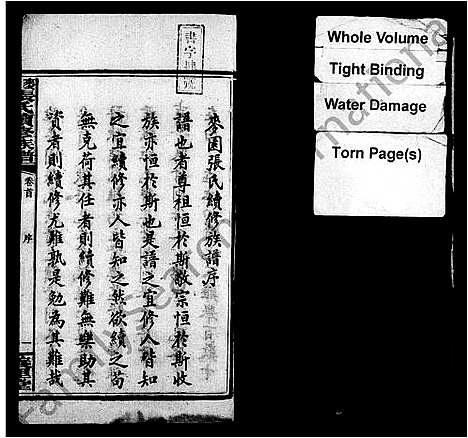 麥園張氏續修族譜序
譜也者尊祖恒於斯敬宗恒於斯收
族亦恒於斯也是譜之宜修人皆知
之宜續修亦人皆知之然欲續之苟
無克荷其任者則續修難無樂助其
資者則續修尤難孰是勉為其難哉
卷首
序
一
Whole Volume
Tight Binding
Water Damage
Torn Page(s)
FamilySearch International